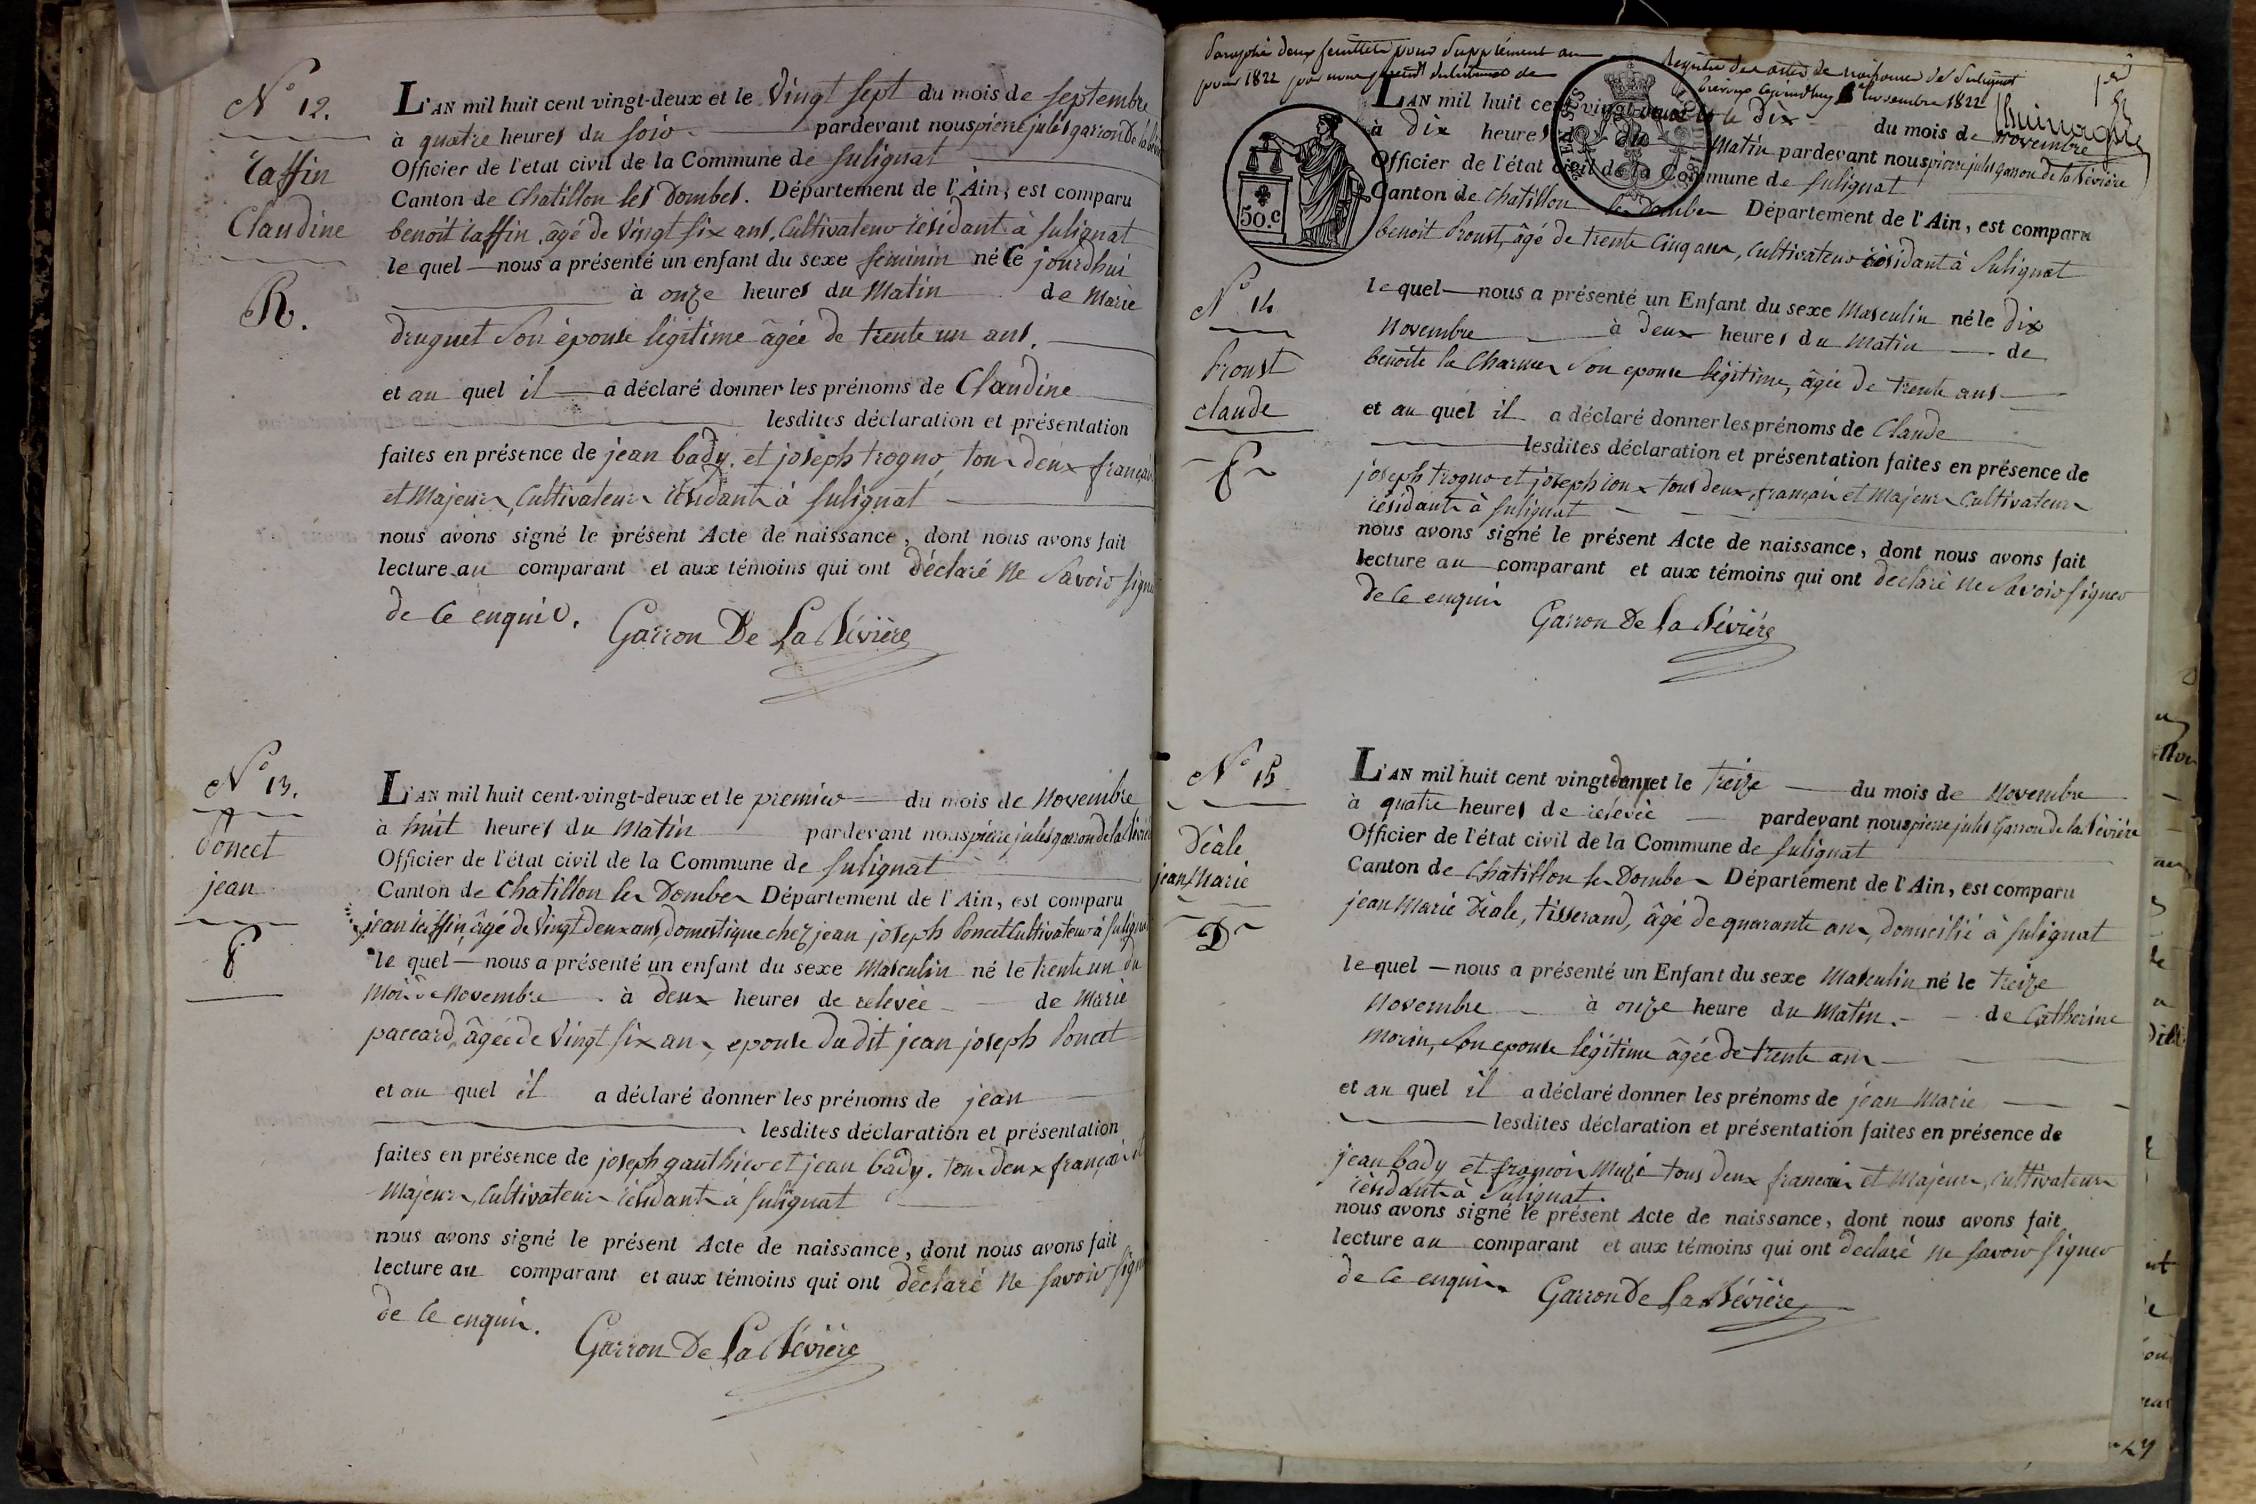 N° 12.
Raffin
Claudine
R.
L'AN mil huit cent vingt-deux et le vingt sept du mois de septembre
à quatre heures du soir pardevant nous pierre jules garron De la
Officier de l'etat civil de la Commune de Sulignat
Canton de Chatillon les Dombes. Département de l'Ain, est comparu
benoit raffin, âgé de vingt six ans, Cultivateur résidant à Sulignat
le quel nous a présenté un enfant du sexe féminin né Ce jourdhui
à onze heures du Matin de Marie
druguet Son épouse légitime âgée de trente un ans.
et au quel il a déclaré donner les prénoms de Claudine
lesdites déclaration et présentation
faites en présence de jean bady. et joseph trogno, tous deux français
et Majeurs, Cultivateurs résidants à Sulignat
nous avons signé le présent Acte de naissance, dont nous avons fait
lecture au comparant et aux témoins qui ont déclaré ne Savoir signer
de Ce enquis.
Garron De La Bévière
N° 13.
Poncet
jean
P
L'AN mil huit cent vingt-deux et le premier du mois de Novembre
à huit heures du Matin pardevant nous pierre jules garron de la Bévière
Officier de l'état civil de la Commune de Sulignat
Canton de Chatillon les Dombes Département de l'Ain, est comparu
jean raffin, âgé de vingt deux ans, domestique chez jean joseph Poncet Cultivateur à Sulignat
le quel nous a présenté un enfant du sexe Masculin né le trente un du
Mois de Novembre à deux heures de relevée de Marie
paccard, âgée de vingt six ans, epouse du dit jean joseph Poncet
et au quel il a déclaré donner les prénoms de jean
lesdites déclaration et présentation
faites en présence de joseph gauthier et jean bady. tous deux français et
Majeurs, Cultivateurs résidants à Sulignat
nous avons signé le présent Acte de naissance, dont nous avons fait
lecture au comparant et aux témoins qui ont déclaré ne Savoir signer
de Ce enquis.
Garron De La Bévière
Paraphé deux feuillets pour Supplément au Registre des actes de naissance de Sulignat
pour 1822 par nous président du tribunal de novembre 1822
1er
50.c
N° 14
Proust
claude
P
L'AN mil huit cent vingt-deux et le dix du mois de novembre
à dix heures du Matin pardevant nous pierre jules garron de la Bévière
Officier de l'état civil de la Commune de Sulignat
Canton de Chatillon les Dombes Département de l'Ain, est comparu
benoit Proust, âgé de trente Cinq ans, Cultivateur résidant à Sulignat
le quel nous a présenté un Enfant du sexe Masculin né le dix
Novembre à deux heures du Matin de
benoite la Charme Son epouse légitime, âgée de trente ans
et au quel il a déclaré donner les prénoms de Claude
lesdites déclaration et présentation faites en présence de
joseph trogno et joseph roux tous deux, français et Majeurs Cultivateurs
résidants à Sulignat
nous avons signé le présent Acte de naissance, dont nous avons fait
lecture au comparant et aux témoins qui ont déclaré ne Savoir signer
de Ce enquis
Garron De La Bévière
N° 15
Déale
jean Marie
D
L'AN mil huit cent vingt deux et le treize du mois de Novembre
à quatre heures de relevée pardevant nous pierre jules Garron de la Bévière
Officier de l'état civil de la Commune de Sulignat
Canton de Chatillon les Dombes Département de l'Ain, est comparu
jean Marie Déale, tisserand, âgé de quarante ans, domicilié à Sulignat
le quel nous a présenté un Enfant du sexe Masculin né le treize
Novembre à onze heure du Matin. de Catherine
Morin, Son epouse légitime âgée de trente ans
et au quel il a déclaré donner les prénoms de jean Marie
lesdites déclaration et présentation faites en présence de
jean bady et françois Muzi tous deux français et Majeurs, cultivateurs
résidants à Sulignat.
nous avons signé le présent Acte de naissance, dont nous avons fait
lecture au comparant et aux témoins qui ont déclaré ne Savoir signer
de Ce enquis
Garron De La Bévière